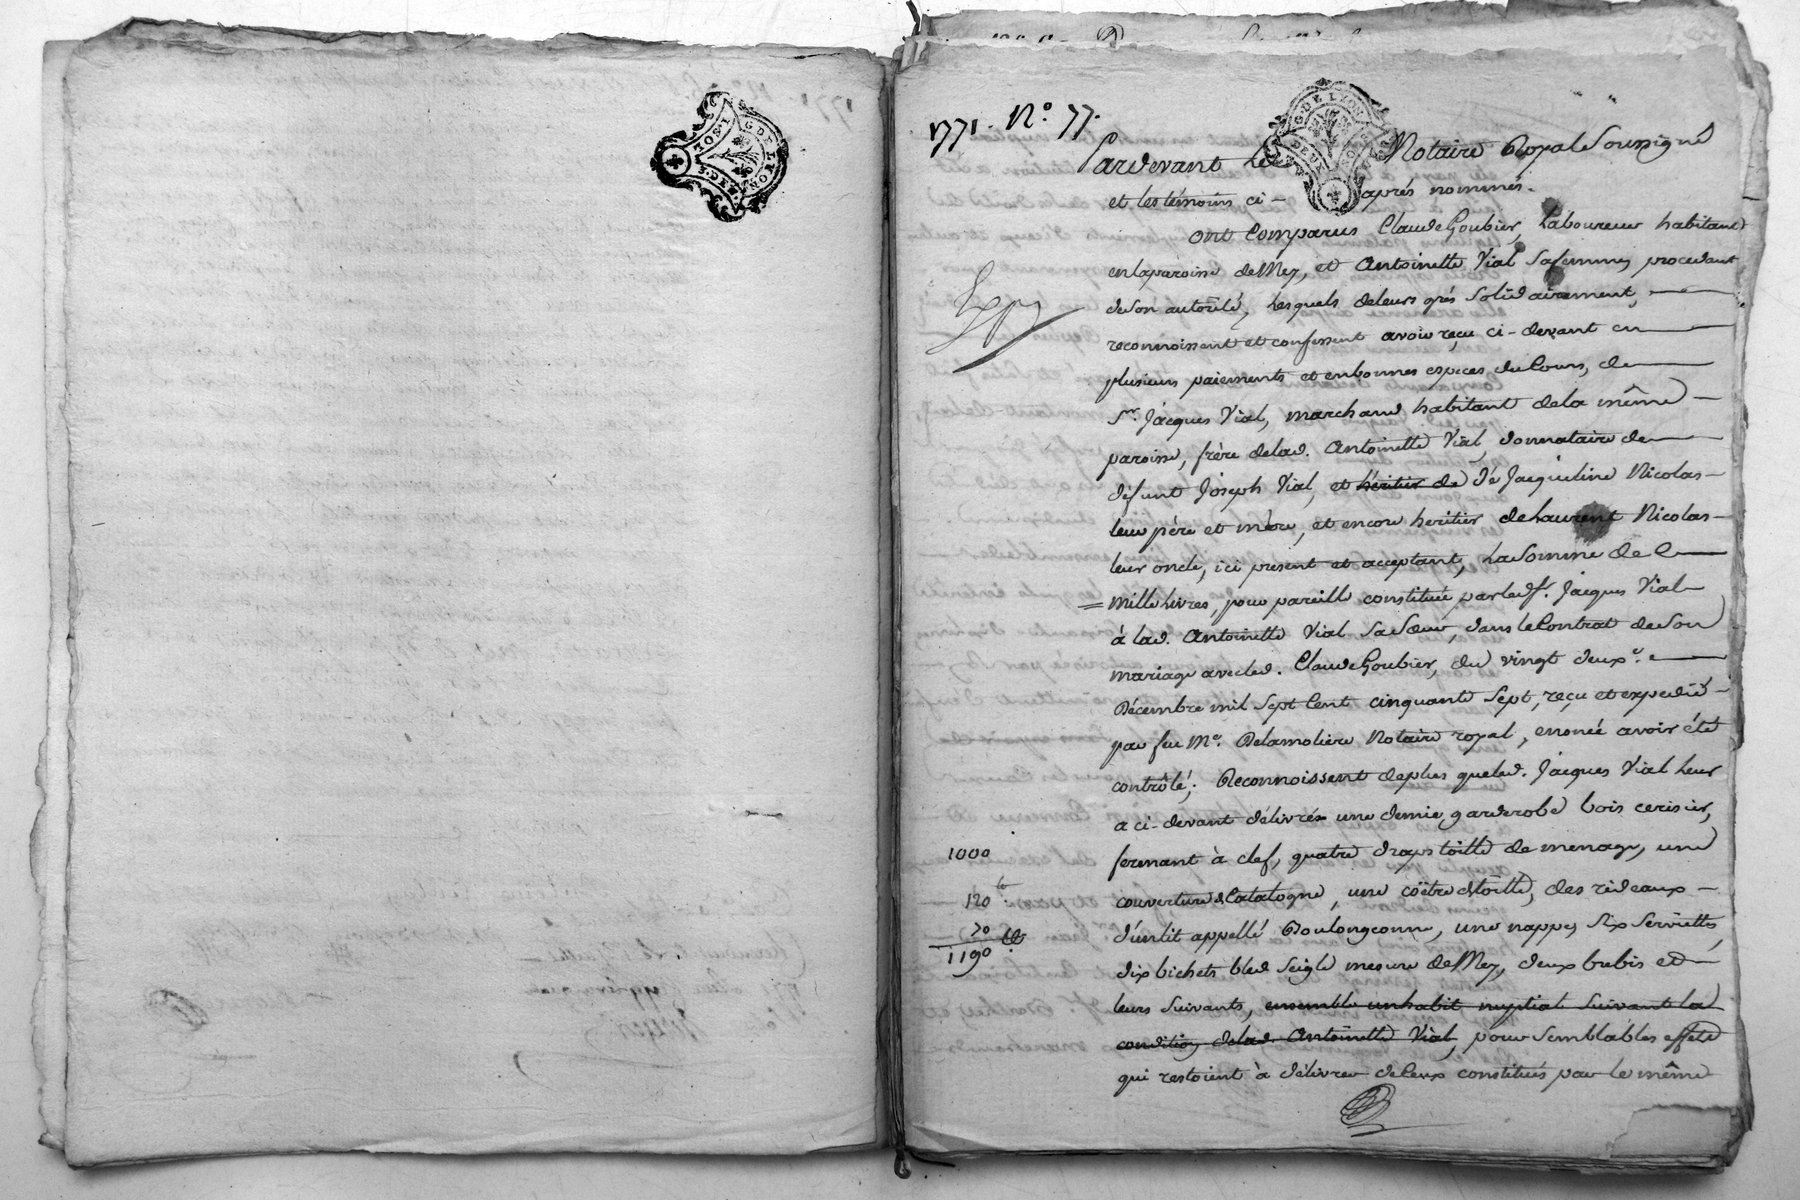 1771. N.º 77.
G. DE LYON
DEUX SOLS
G. DE LYON
Pardevant Le Notaire Royal Soussigné
et les témoins ci- après nommés.
ont Comparus Claude Goubier, Laboureur habitant
en la paroisse de Mey, et Antoinette Vial Sa femme, procedant
de Son autorité, Lesquels de leurs grés Solidairement,
reconnoissent et confessent avoir reçu ci-devant en
plusieurs paiements et en bonnes especes du Cours, de
Sr. Jacques Vial, marchand habitant de la même
paroisse, frère de lad. Antoinette Vial, donnataire de
défunt Joseph Vial, et héritier de de Jacqueline Nicolas
leur père et mère, et encore heritier de Laurent Nicolas
leur oncle, ici present et acceptant, La Somme de
Mille Livres, pour pareille constituée par led. Sr. Jacques Vial
à lad. Antoinette Vial Sa Sœur, dans le Contrat de Son
mariage avec led. Claude Goubier, du vingt deuxe.
Décembre mil Sept Cent cinquante Sept, reçu et expedié
par feu Me. Delamoliere Notaire royal, enoncé avoir été
contrôlé; Reconnoissent de plus que led. Jacques Vial Leur
a ci-devant délivrés une demie garderobe bois cerisier,
fermant à clef, quatre draps toille de menage, une
couverture Catalogne, une coëtre de toille, des rideaux
d'un lit appellé Boulongeonne, une nappe, Six Serviettes,
dix bichets bled Seigle mesure de Mey, deux brebis et
leurs Suivants, ensemble un habit nuptial Suivant la
condition de lad. Antoinette Vial, pour Semblables effets
qui restoient à délivrer de Ceux constitués par le même
1000
120
70
1190